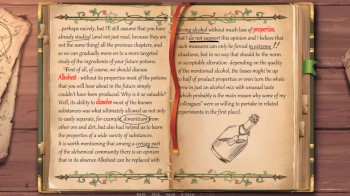 ...perhaps naively, but I'll still assume that you have
already studied (and not just read, because they are
not the same thing) all the previous chapters, and
so we can gradually move on to a more targeted
study of the ingredients of your future potions.
"First of all, of course, we should discuss
Alkahest - without its properties most of the potions
that you will hear about in the future simply
couldn't have been produced. Why is it so valuable?
Well, its ability to dissolve most of the known
substances was what ultimately allowed us not only
to easily separate, for example, from
other ore and dirt, but also had helped us to learn
the properties of a wide variety of substances.
It is worth mentioning that among a certain part
of the alchemical community there is an opinion
that in its absence Alkahest can be replaced with
strong alcohol without much loss of properties,
but I do not support this opinion and I believe that
such measures can only be forced in extreme !!
situations, but in no way that should be the norm
or acceptable alteration: depending on the quality
of the mentioned alcohol, the losses might be up
to half of product properties or even turn the whole
brew in just an alcohol mix with unusual taste
which probably is the main reason why some of my
colleagues were so willing to partake in related
experiments in the first place).